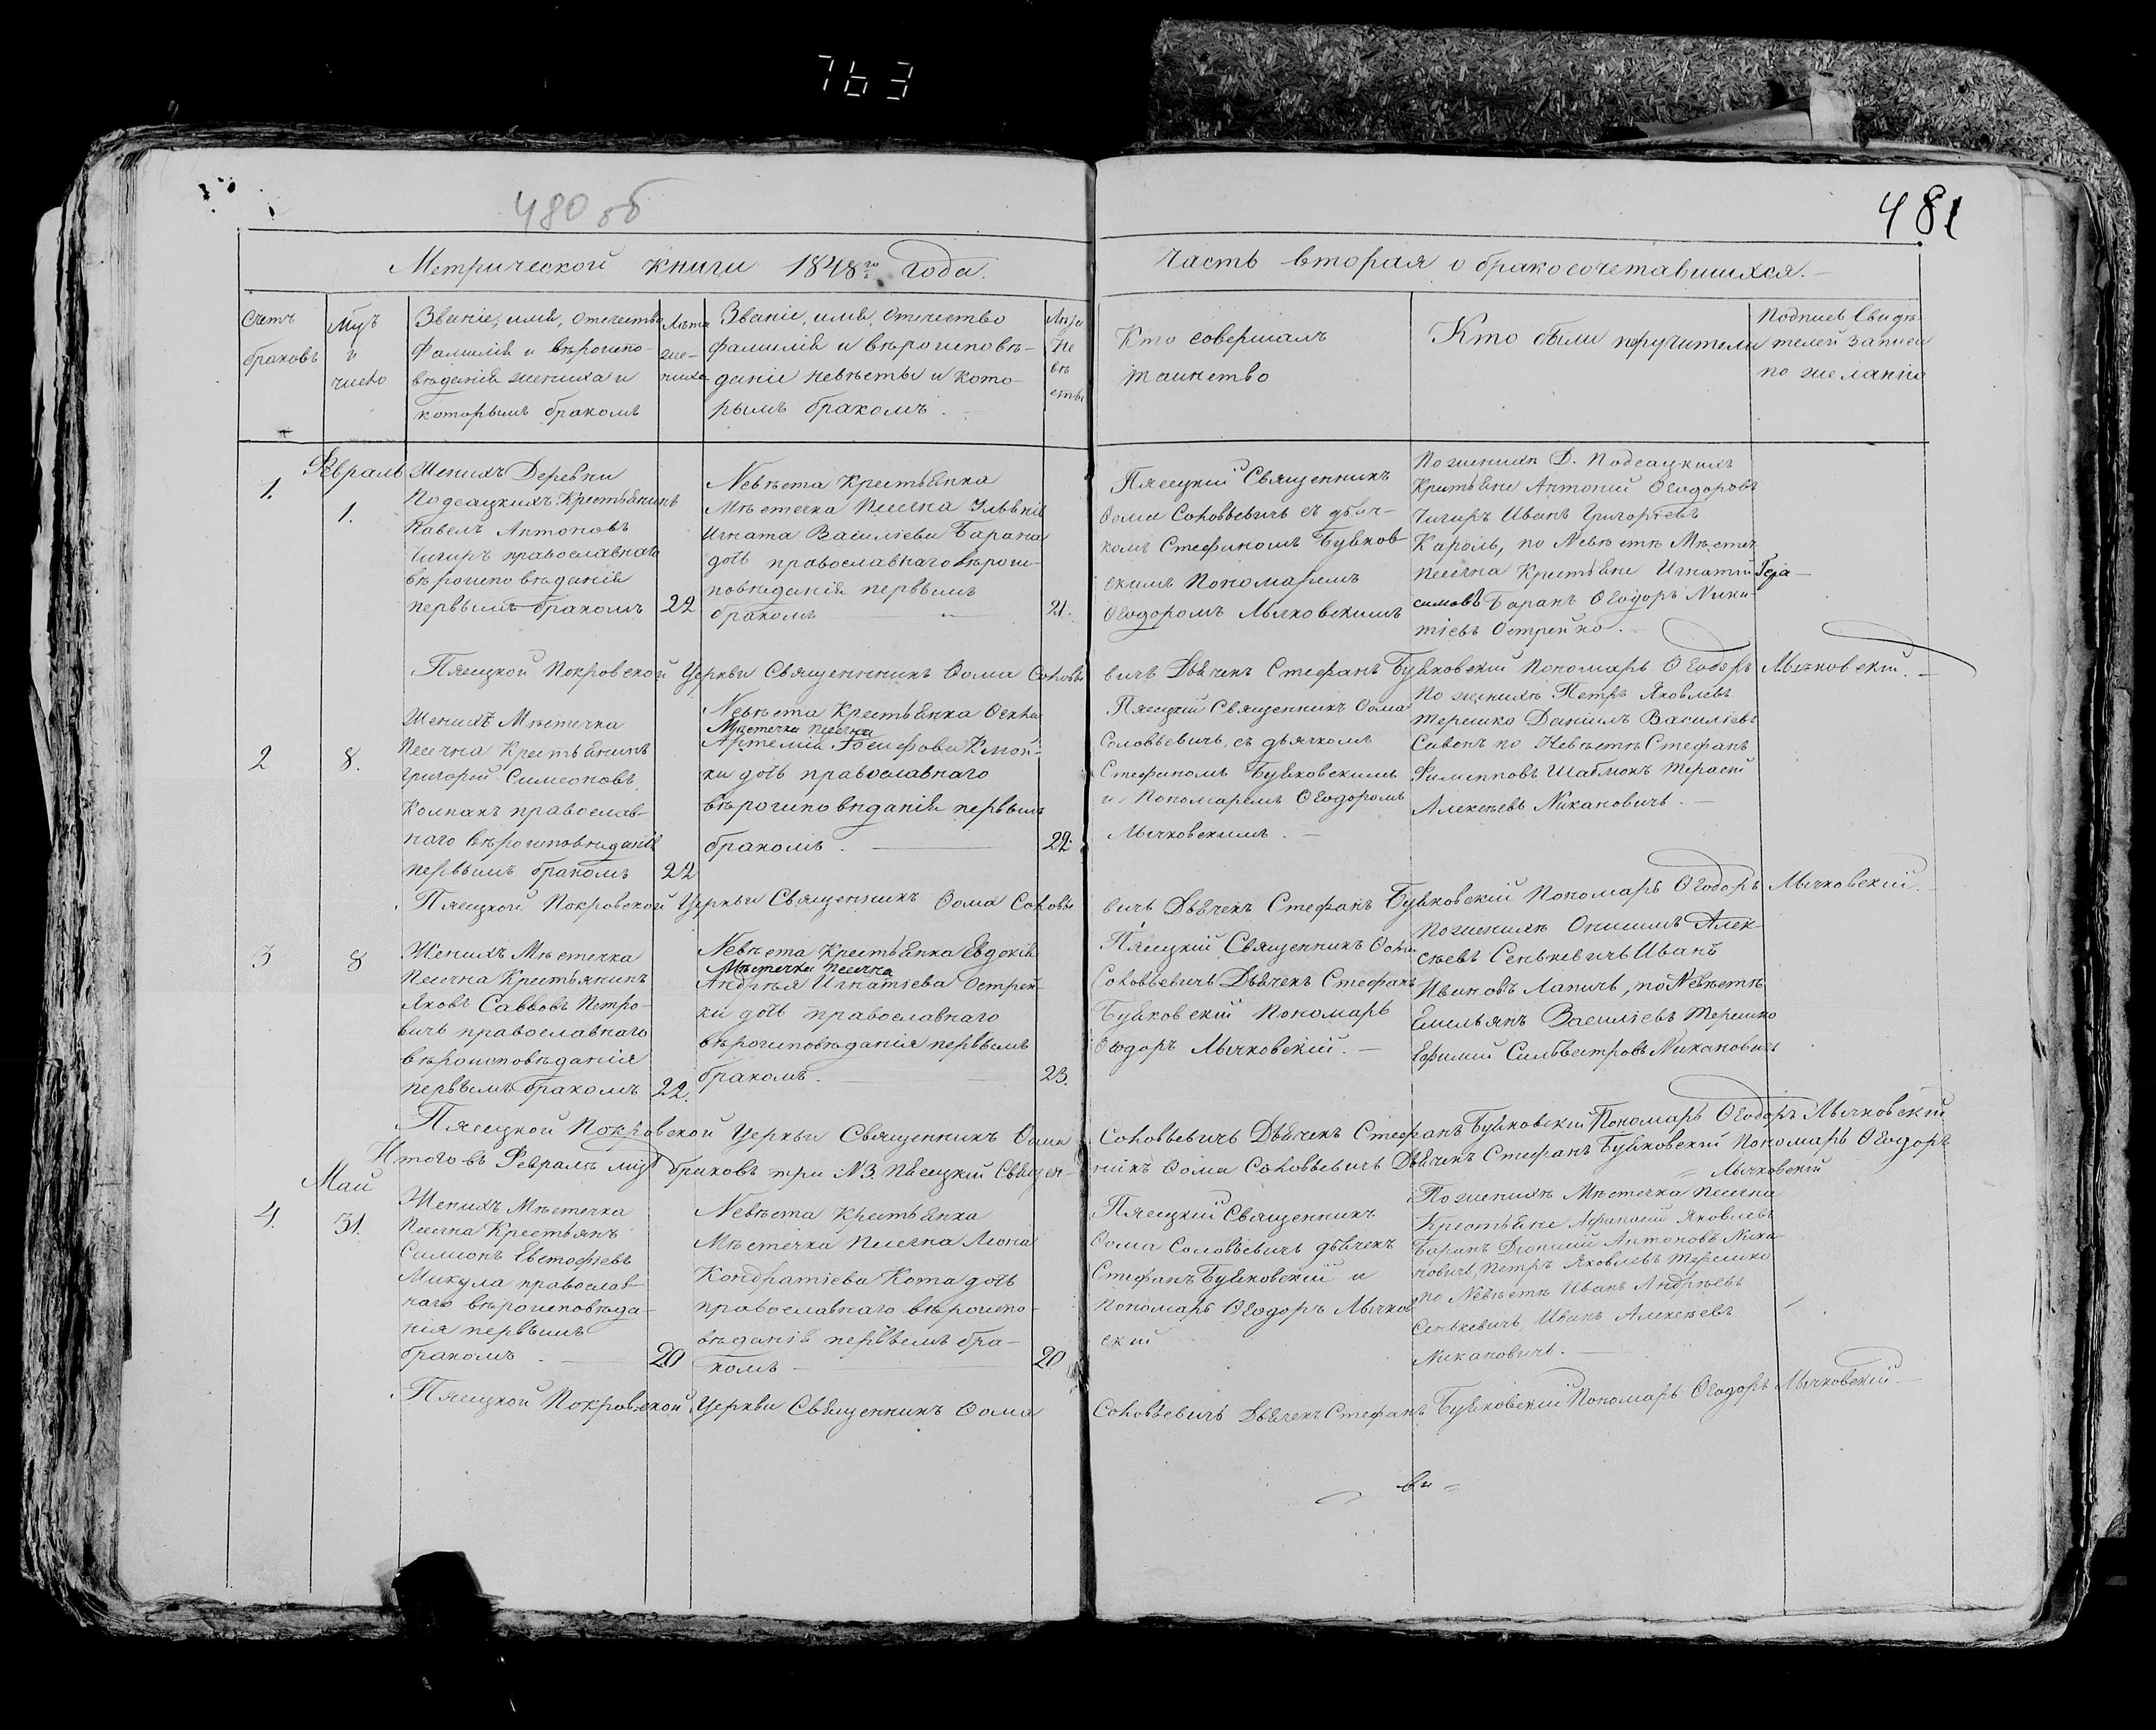 763
480 об
481
Метрической книги 1848го года.
Часть вторая о бракосочетавшихся.
Счетъ
браковъ
Мцъ
и
число
Званіе, имя, отечество
фамилія и вѣроиспо-
вѣданія жениха и
которымъ бракомъ
Лѣта
же-
ниха
Званіе, имя, отечество
фамилія и вѣроисповѣ-
даніе невѣсты и кото-
рымъ бракомъ.
Лѣта
не
вѣ
сты
Кто совершалъ
таинство
Кто были поручители
Подписъ свидѣ-
телей записи
по желанію
Февраль
1.
1.
Женихъ Деревни
Подсацкихъ Крестьянинъ
Павелъ Антоновъ
Чигиръ православнаго
вѣроисповѣданія
первымъ бракомъ
22
Nевѣста Крестьянка
Мѣстечка Песечна
Игната Василіева Барана
дочь православнаго вѣроис-
повѣданія первымъ
бракомъ
21.
Пясецкій Священникъ
Ѳома Соловьевичъ съ дьяч-
комъ Стефаномъ Буяков
скимъ Пономаремъ
Ѳеодоромъ Лычковскимъ
По женихѣ Д. Подсацкихъ
Крестьяне Антоній Ѳеодоровъ
Чигиръ Иванъ Григоріевъ
Кароль, по Nевѣстѣ Мѣстеч
Песечна Крестьяне Игнатій Гера-
симовъ Баранъ Ѳеодоръ Ники-
тіевъ Острейко.
Пясецкой Покровской Церкви Священникъ Ѳома Соловье
вичъ Дьячекъ Стефанъ Буяковскій Пономарь Ѳеодоръ Лычковскій.
2
8.
Женихъ Мѣстечка
Песечна Крестьянинъ
Григорій Симеоновъ
Колпакъ православ-
наго вѣроисповѣданія
первымъ бракомъ
22
Nевѣста Крестьянка Ѳекла
Мѣстечка Песечна
Артемія Іосифова
ки дочь православнаго
вѣроисповѣданія первымъ
бракомъ.
22.
Пясецкій Священникъ Ѳома
Соловьевичъ, съ дьячкомъ
Стефаномъ Буяковскимъ
и Пономаремъ Ѳеодоромъ
Лычковскимъ.
По женихѣ Петръ Яковлевъ
Терешко Даніилъ Василіевъ
по Невѣстѣ Стефанъ
Филипповъ
Алексѣевъ Никановичъ.
Пясецкой Покровской Церкви Священникъ Ѳома Соловье
вичъ Дьячекъ Стефанъ Буяковскій Пономарь Ѳеодоръ Лычковскій.
3
8
Женихъ Мѣстечка
Песечна Крестьянинъ
Яковъ Саввовъ Петро-
вичъ православнаго
вѣроисповѣданія
первымъ бракомъ
22.
Nевѣста Крестьянка Евдокія
Мѣстечка Песечна
Андрѣя Игнатіева Острей-
ки дочь православнаго
вѣроисповѣданія первымъ
бракомъ.
23.
Пясецкій Священникъ Ѳома
Соловьевичъ Дьячекъ Стефанъ
Буяковскій Пономарь
Ѳеодоръ Лычковскій.
По женихѣ Онисимъ Алек-
сѣевъ Сенькевичъ Иванъ
Ивановъ Лапичъ, по Nевѣстѣ
Емельянъ Василіевъ Терешко
Ефимій Сильвестровъ Никановичъ
Пясецкой Покровской Церкви Священникъ Ѳома
Соловьевичъ Дьячекъ Стефанъ Буяковскій Пономарь Ѳеодоръ Лычковскій
Итого въ Февралѣ мцѣ браковъ три N3. Пясецкій Священ-
никъ Ѳома Соловьевичъ Дьячекъ Стефанъ Буяковскій Пономарь Ѳеодоръ
Лычковскій
Май
4.
31.
Женихъ Мѣстечка
Песечна Крестьянъ
Симіонъ Евстафіевъ
Микула православ-
наго вѣроисповѣда-
нія первымъ
бракомъ.
20
Nевѣста Крестьянка
Мѣстечка Песечна
Кондратіева Кота дочь
православнаго вѣроиспо-
вѣданія первымъ бра-
комъ
20
Пясецкій Священникъ
Ѳома Соловьевичъ дьячекъ
Стефанъ Буяковскій и
пономарь Ѳеодоръ Лычков
скій
По женихѣ Мѣстечка Песечна
Крестьяне Афанасій Яковлевъ
Баранъ Антоновъ Ника-
новичъ, Петръ Яковлевъ Терешко
по Nевѣстѣ Иванъ Андрѣевъ
Сенькевичъ, Иванъ Алексѣевъ
Никановичъ.
Пясецкой Покровской Церкви Священникъ Ѳома
Соловьевичъ Дьячекъ Стефанъ Буяковскій Пономарь Ѳеодоръ Лычковскій.